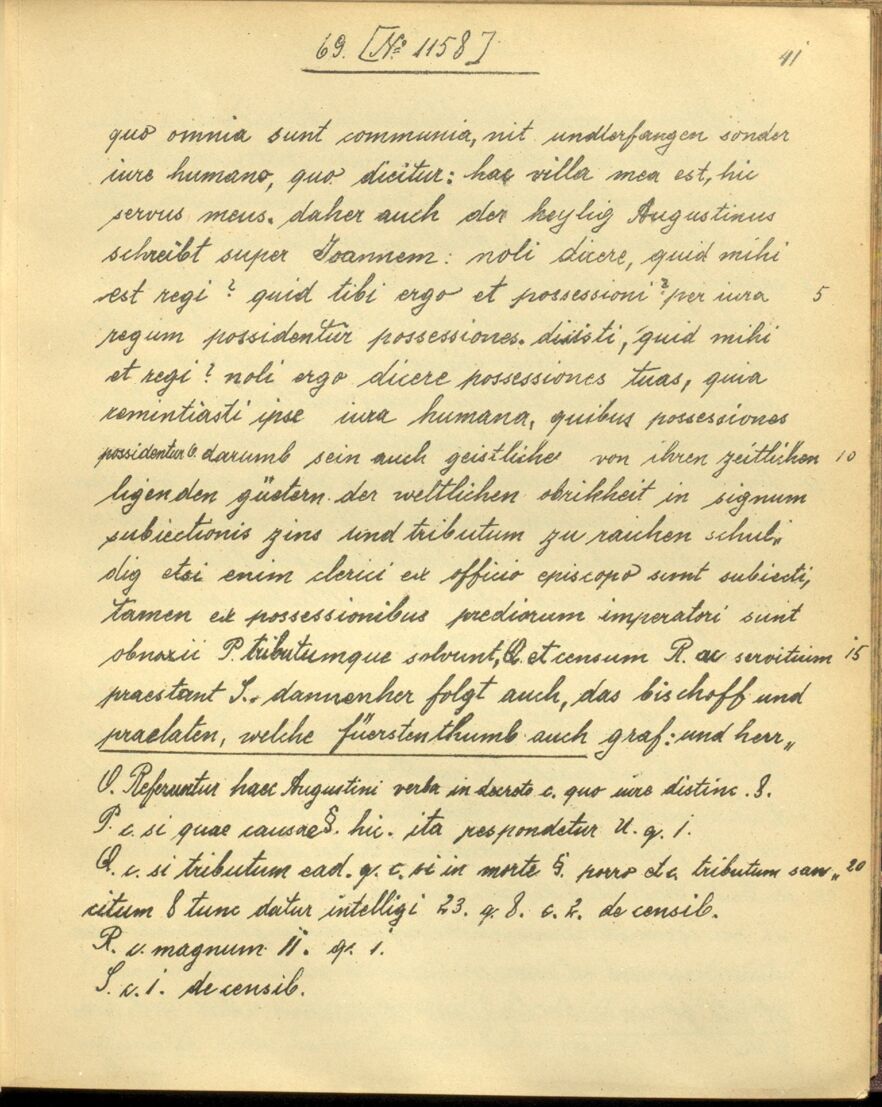 69. [No 1158]
41
quo omnia sunt communia, nit undterfangen sonder
iure humano, quo dicitur: hac villa mea est, hic
servus meus. daher auch der heylig Augustinus
schreibt super Joannem: noli dicere, quid mihi
est regi? quid tibi ergo et possessioni? per iura 5
regum possidentur possessiones. dixisti, quid mihi
et regi? noli ergo dicere possessiones tuas, quia
remintiasti ipse iura humana, quibus possessiones
possidentur O. darumb sein auch geistliche von ihren zeitlichen 10
ligenden güetern der weltlichen obrikheit in signum
subiectionis zins und tributum zu raichen schul„
dig etsi enim clerici ex officio episcopo sunt subiecti,
tamen ex possessionibus prediorum imperatori sunt
obnoxii P. tributumque solvunt, Q. et censum R. ac servitium 15
praestant S. dannenher folgt auch, das bischoff und
praelaten, welche füerstenthumb auch graf: und herr„
O. Referuntur haec Augustini verba in decreto c. quo iure distinc. 8.
P. c. si quae causae §. hic. ita respondetur 11. q. 1.
Q. c. si tributum ead. q. c. si in morte §. porro et c. tributum san„ 20
citum 8 tunc datur intelligi 23. q. 8. c. 2. de censib.
R. c. magnum 11. q. 1.
S. c. 1. de censib.